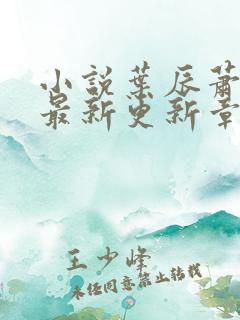 小説葉辰蕭
最新更新章
王少峰
未経同意禁止转載